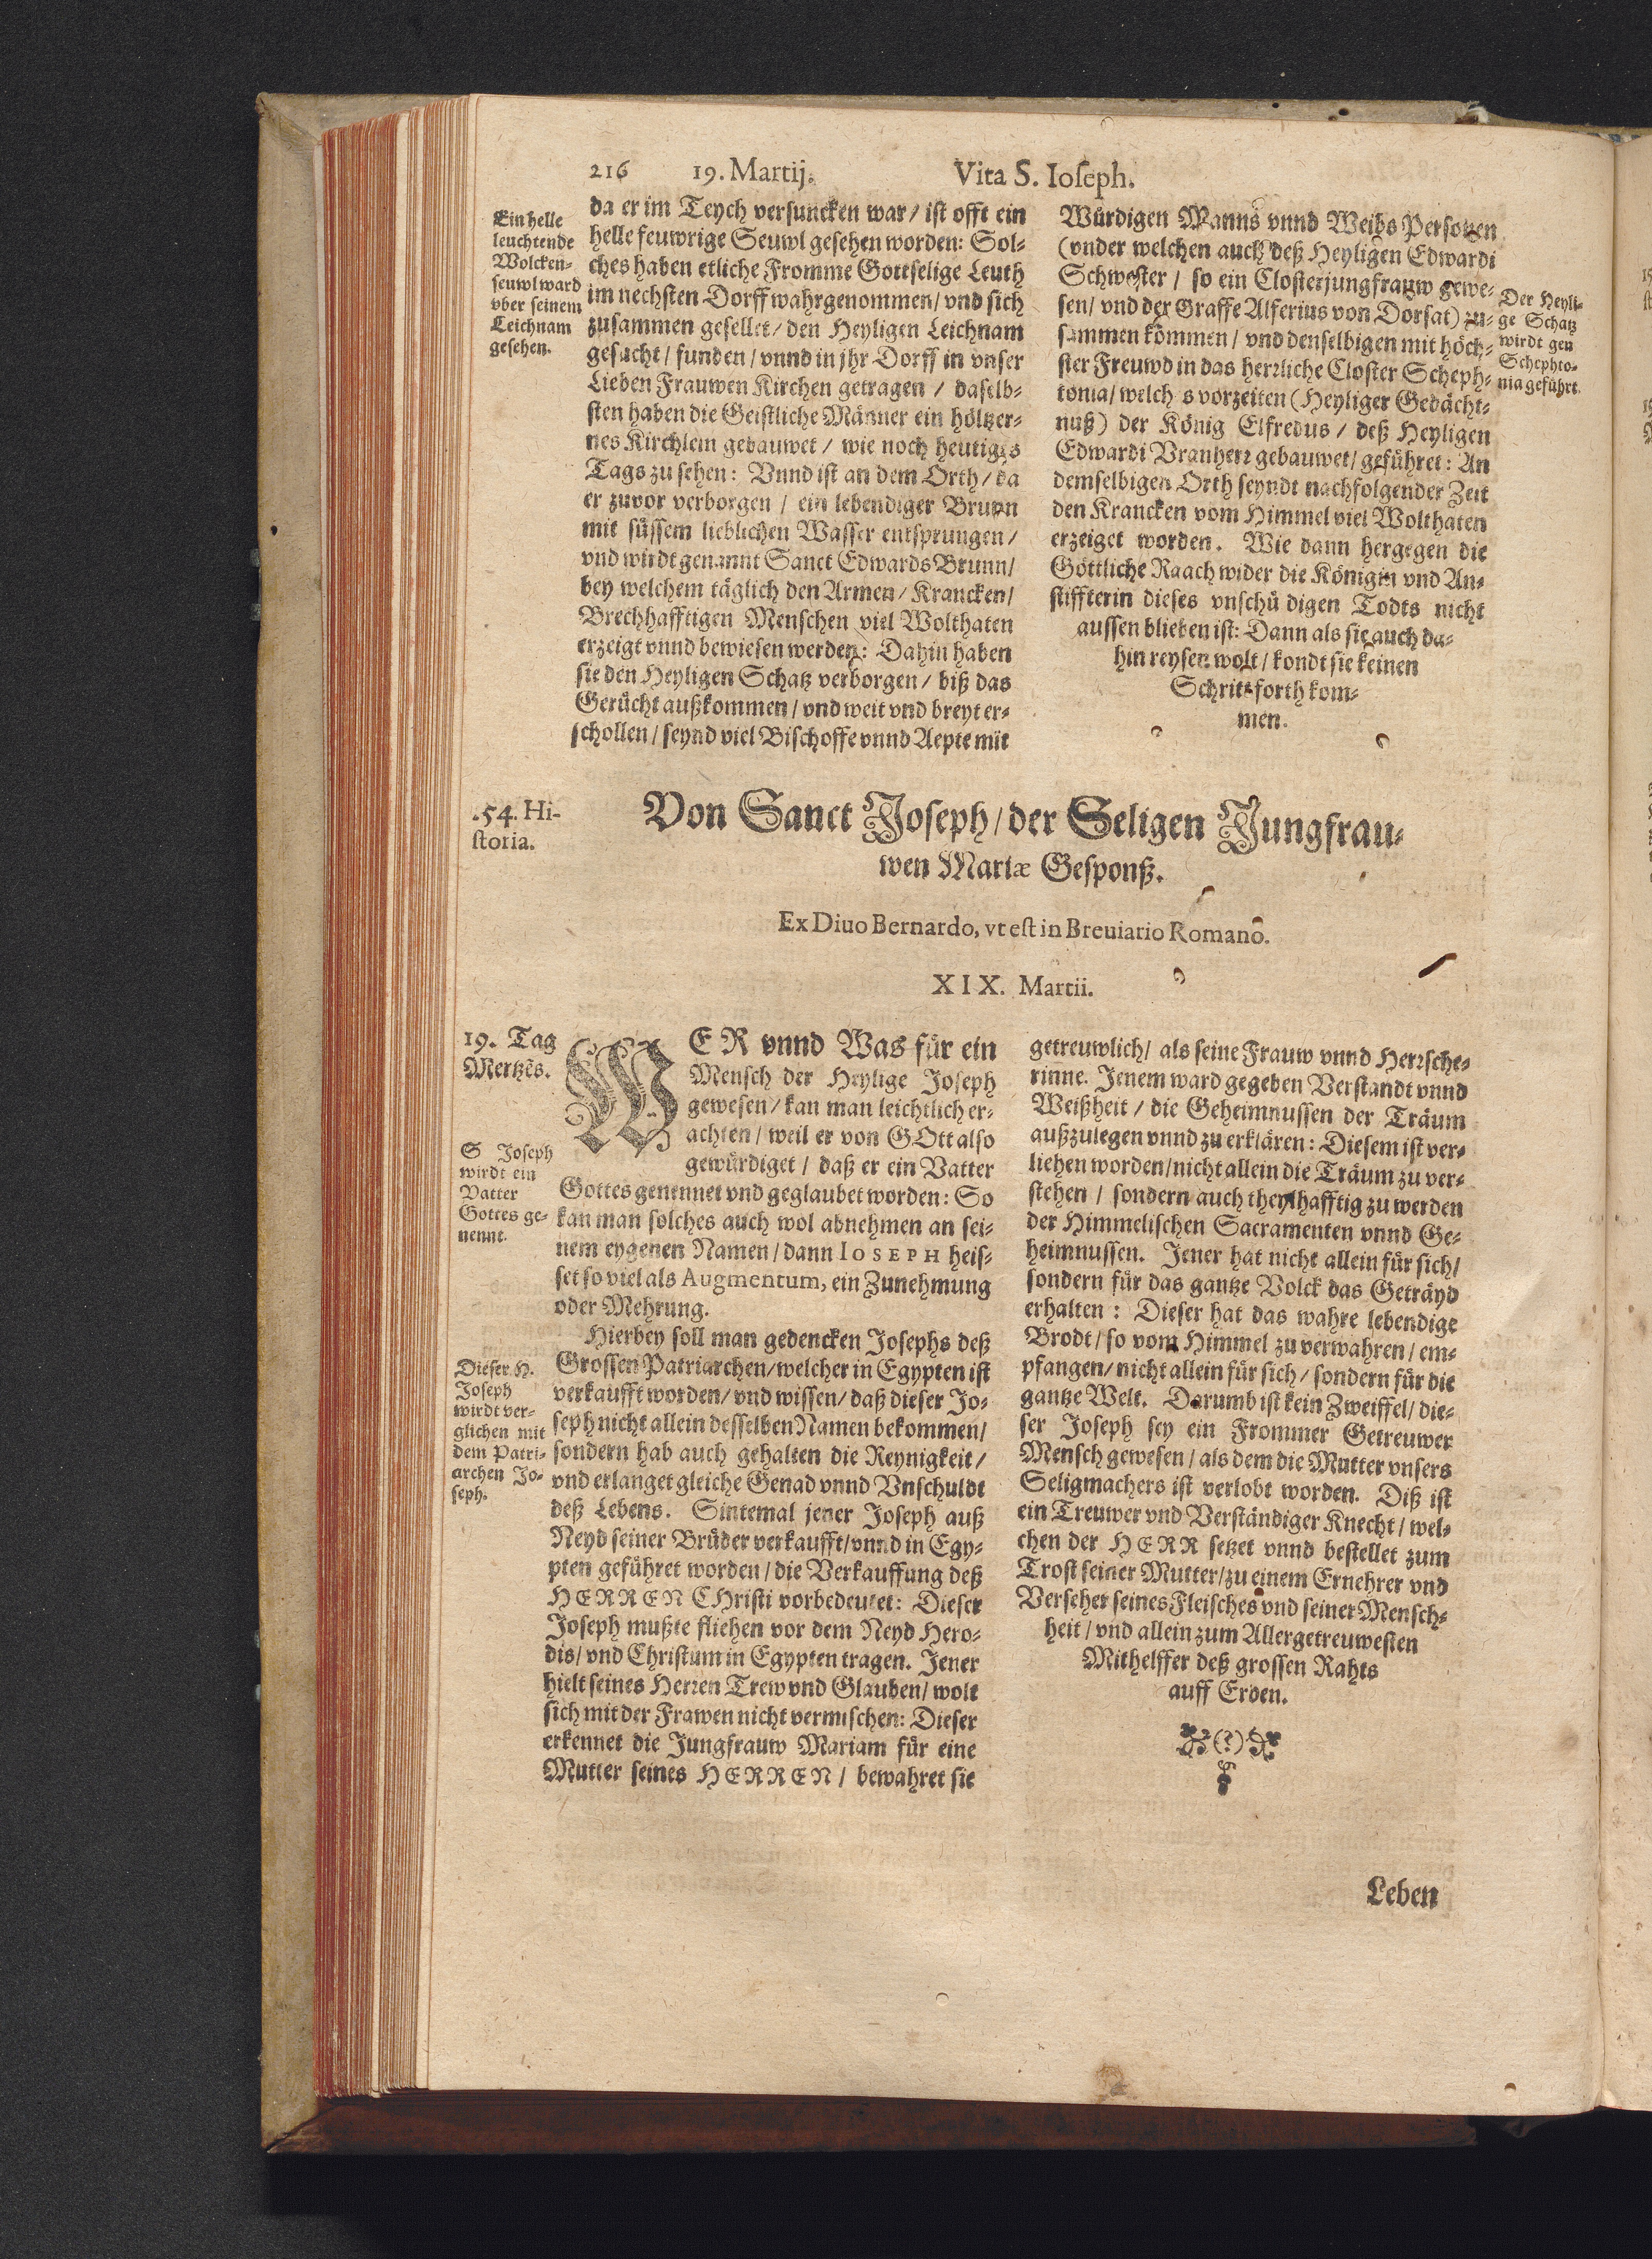 216 19. Martij. Vita S. Ioseph.
Ein helle
leuchtende
Wolcken-
seuwl ward
vber seinem
Leichnam
gesehen.
da er im Teych versuncken war / ist offt ein
helle feuwrige Seuwl gesehen worden: Sol-
ches haben etliche Fromme Gottselige Leuth
im nechsten Dorff wahrgenommen / vnd sich
zusammen gesellet / den Heyligen Leichnam
gesucht / funden / vnnd in jhr Dorff in vnser
Lieben Frauwen Kirchen getragen / daselb-
sten haben die Geistliche Männer ein höltzer-
nes Kirchlein gebauwet / wie noch heutiges
Tags zu sehen: Vnnd ist an dem Orth / da
er zuvor verborgen / ein lebendiger Brunn
mit süssem lieblichen Wasser entsprungen /
vnd wirdt genannt Sanct Edwards Brunn /
bey welchem täglich den Armen / Krancken /
Brechhafftigen Menschen viel Wolthaten
erzeigt vnnd bewiesen werden: Dahin haben
sie den Heyligen Schatz verborgen / biß das
Gerücht außkommen / vnd weit vnd breyt er-
schollen / seynd viel Bischoffe vnnd Aepte mit
Würdigen Manns vnnd Weibs Personen
(vnder welchen auch deß Heyligen Edwardi
Schwester / so ein Closterjungfrauw gewe-
sen / vnd der Graffe Alferius von Dorsat) zu-
sammen kommen / vnd denselbigen mit höch-
ster Freuwd in das herrliche Closter Scheph-
tonia / welch s vorzeiten (Heyliger Gedächt-
nuß) der König Elfredus / deß Heyligen
Edwardi Vranherr gebauwet / geführet: An
demselbigen Orth seyndt nachfolgender Zeit
den Krancken vom Himmel viel Wolthaten
erzeiget worden. Wie dann hergegen die
Göttliche Raach wider die Königin vnd An-
stiffterin dieses vnschü digen Todts nicht
aussen blieben ist: Dann als sie auch da-
hin reysen wolt / kondt sie keinen
Schritt forth kom-
men.
Der Heyli-
ge Schatz
wirdt gen
Schephto-
nia geführt.
54. Hi-
storia.
Von Sanct Joseph / der Seligen Jungfrau-
wen Mariæ Gesponß.
Ex Diuo Bernardo, vt est in Breuiario Romano.
XIX. Martii.
19. Tag
Mertzēs.
S Joseph
wirdt ein
Vatter
Gottes ge-
nennt.
Dieser H.
Joseph
wirdt ver-
glichen mit
dem Patri-
archen Jo-
seph.
WER vnnd Was für ein
Mensch der Heylige Joseph
gewesen / kan man leichtlich er-
achten / weil er von GOtt also
gewürdiget / daß er ein Vatter
Gottes genennet vnd geglaubet worden: So
kan man solches auch wol abnehmen an sei-
nem eygenen Namen / dann IOSEPH heis-
set so viel als Augmentum, ein Zunehmung
oder Mehrung.
Hierbey soll man gedencken Josephs deß
Grossen Patriarchen / welcher in Egypten ist
verkaufft worden / vnd wissen / daß dieser Jo-
seph nicht allein desselben Namen bekommen /
sondern hab auch gehalten die Reynigkeit /
vnd erlanget gleiche Genad vnnd Vnschuldt
deß Lebens. Sintemal jener Joseph auß
Neyd seiner Brüder verkaufft / vnnd in Egy-
pten geführet worden / die Verkauffung deß
HERREN CHristi vorbedeutet: Dieser
Joseph mußte fliehen vor dem Neyd Hero-
dis / vnd Christum in Egypten tragen. Jener
hielt seines Herren Trew vnd Glauben / wolt
sich mit der Frawen nicht vermischen: Dieser
erkennet die Jungfrauw Mariam für eine
Mutter seines HERREN / bewahret sie
getreuwlich / als seine Frauw vnnd Herrsche-
rinne. Jenem ward gegeben Verstandt vnnd
Weißheit / die Geheimnussen der Träum
außzulegen vnnd zu erklären: Diesem ist ver-
liehen worden / nicht allein die Träum zu ver-
stehen / sondern auch theylhafftig zu werden
der Himmelischen Sacramenten vnnd Ge-
heimnussen. Jener hat nicht allein für sich /
sondern für das gantze Volck das Geträyd
erhalten: Dieser hat das wahre lebendige
Brodt / so vom Himmel zu verwahren / em-
pfangen / nicht allein für sich / sondern für die
gantze Welt. Darumb ist kein Zweiffel / die-
ser Joseph sey ein Frommer Getreuwer
Mensch gewesen / als dem die Mutter vnsers
Seligmachers ist verlobt worden. Diß ist
ein Treuwer vnd Verständiger Knecht / wel-
chen der HERR setzet vnnd bestellet zum
Trost seiner Mutter / zu einem Ernehrer vnd
Verseher seines Fleisches vnd seiner Mensch-
heit / vnd allein zum Allergetreuwesten
Mithelffer deß grossen Rahts
auff Erden.
(?)
Leben